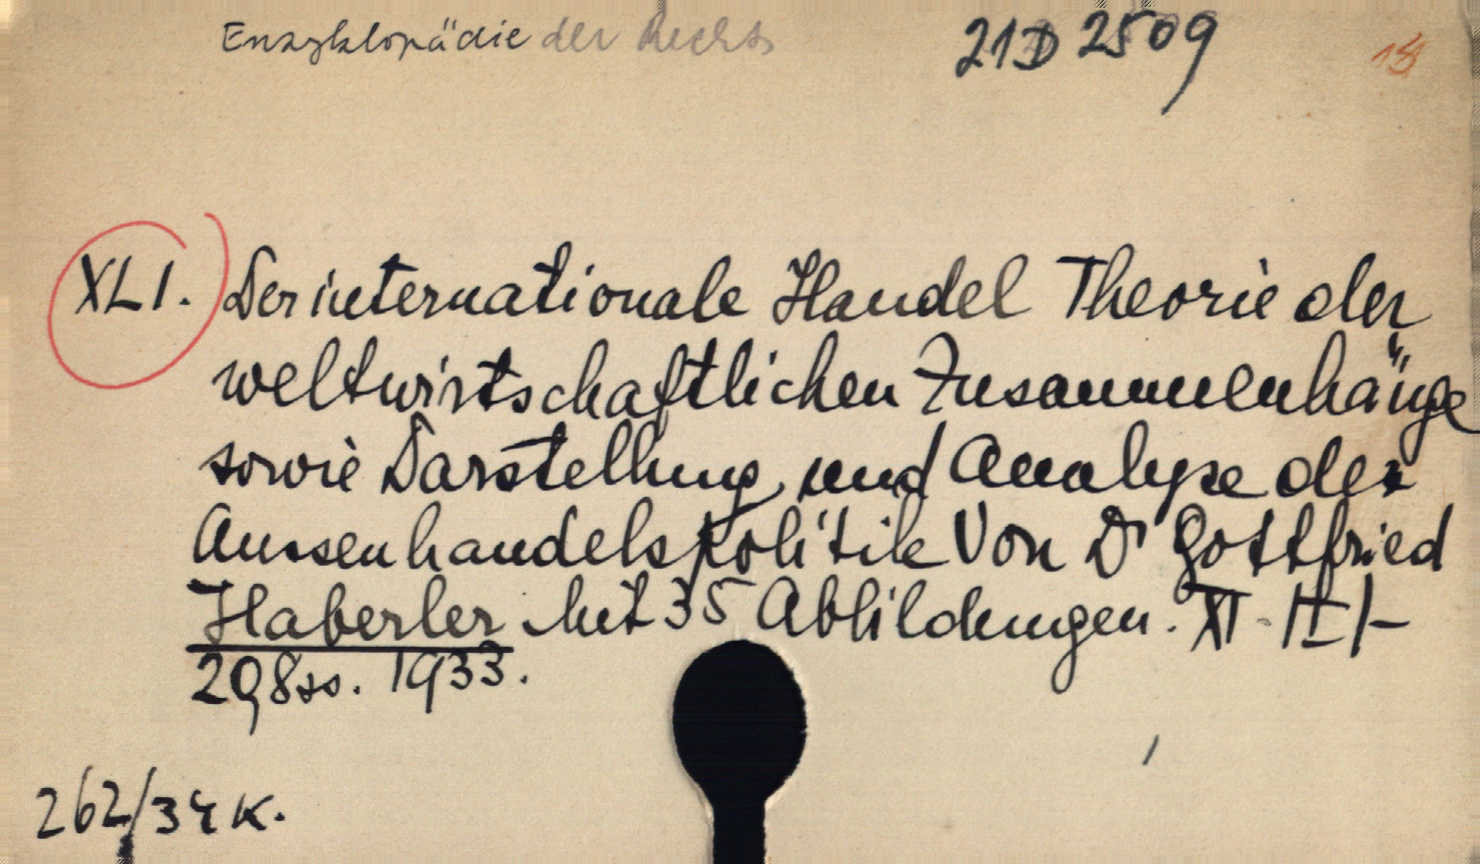 Enzyklopädie der Rechts
21D 2509
18
XLI. Der internationale Handel Theorie der
weltwirtschaftlichen Zusammenhänge
sowie Darstellung und Analyse der
Aussenhandelspolitik Von Dr Gottfried
Haberler Mit 35 Abbildungen. XI.
298ss. 1933.
262/34 K.